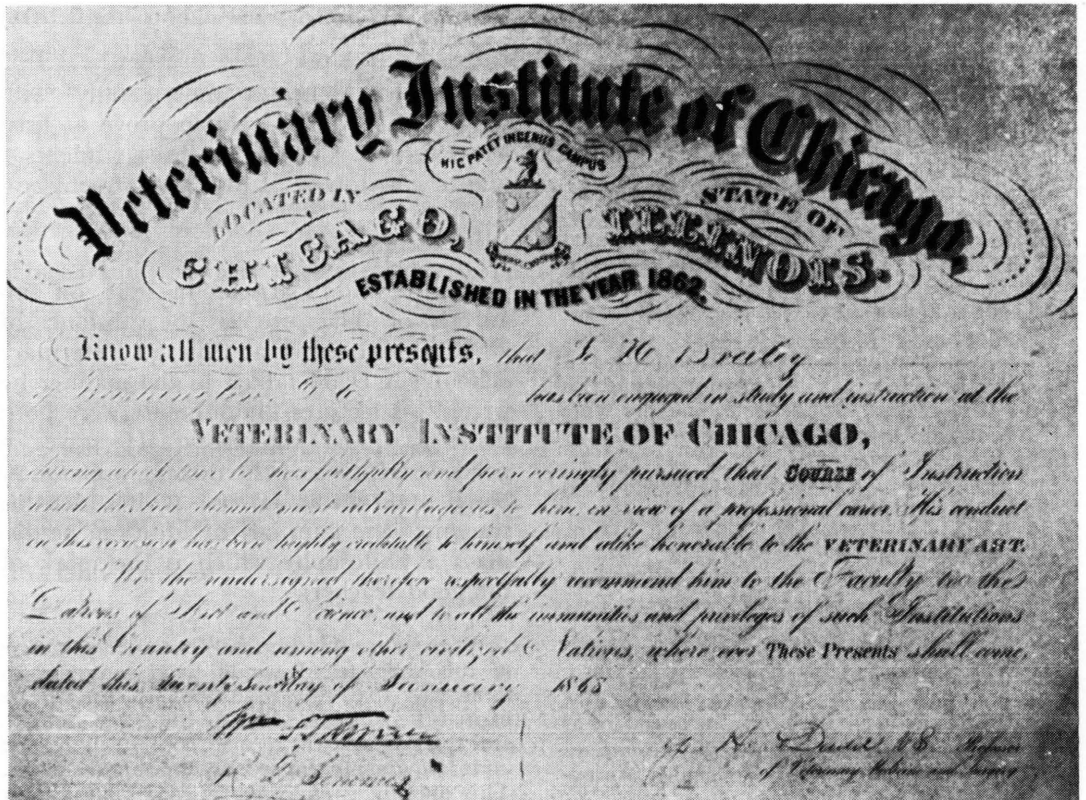 Veterinary Institute of Chicago,
HIC PATET INGENIIS CAMPUS
LOCATED IN
STATE OF
CHICAGO,
ILLINOIS.
ESTABLISHED IN THE YEAR 1862.
Know all men by these presents, that
has been engaged in study and instruction at the
VETERINARY INSTITUTE OF CHICAGO,
during which time he has faithfully and perseveringly pursued that COURSE of Instruction
advantageous to him in view of a professional career. His conduct
on this occasion has been highly creditable to himself and alike honorable to the VETERINARY ART.
We the undersigned therefore respectfully recommend him to the Faculty to the
Patrons of Art and Science, and to all the immunities and privileges of such Institutions
in this Country and among other civilized Nations, where ever These Presents shall come,
dated this day of January
Professor
of Veterinary Medicine and Surgery